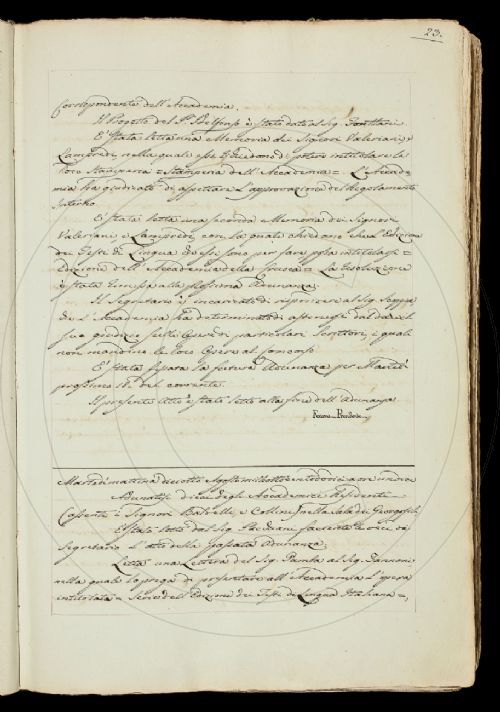 23.
Corrispondente dell'Accademia.
Il Progetto del P. Ildefonso è stato dato al Sig. Fontani.
È stata letta una Memoria dei Signori Valeriani e
Lampredi, nella quale essi chiedono di poter intitolare la
loro Stamperia = Stamperia dell'Accademia = L'Accade-
mia ha giudicato di aspettare l'approvazione del Regolamento
interno.
È stata letta una seconda Memoria dei Signori
Valeriani e Lampredi, con la quale chiedono che l'Edizione
dei Testi di Lingua da essi loro per farsi possa intitolarsi =
Edizione dell'Accademia della Crusca = La risoluzione
è stata rimessa alla prossima Adunanza.
Il Segretario è incaricato di rispondere al Sig.
che l'Accademia ha determinato di astenersi dal dare il
suo giudizio sulle Opere di particolari Scrittori, i quali
non mandino le loro Opere al Concorso.
È stata fissata la futura Adunanza per Martedì
prossimo 18 del corrente.
Il presente Atto è stato letto alla fine dell'Adunanza
Martedì mattina diciotto Agosto mille ottocentododici a ore undici
Adunatisi dieci degli Accademici Residenti
Assenti i Signori Baldelli, e Collini nella Sala dei Georgofili
È stato letto dal Sig. facente le veci di
Segretario l'Atto della passata Adunanza.
Letta una Lettera del Sig. al Sig. Zannoni
nella quale lo prega di presentare all'Accademia l'opera
intitolata = Serie dell'Edizioni dei Testi di Lingua Italiana =,